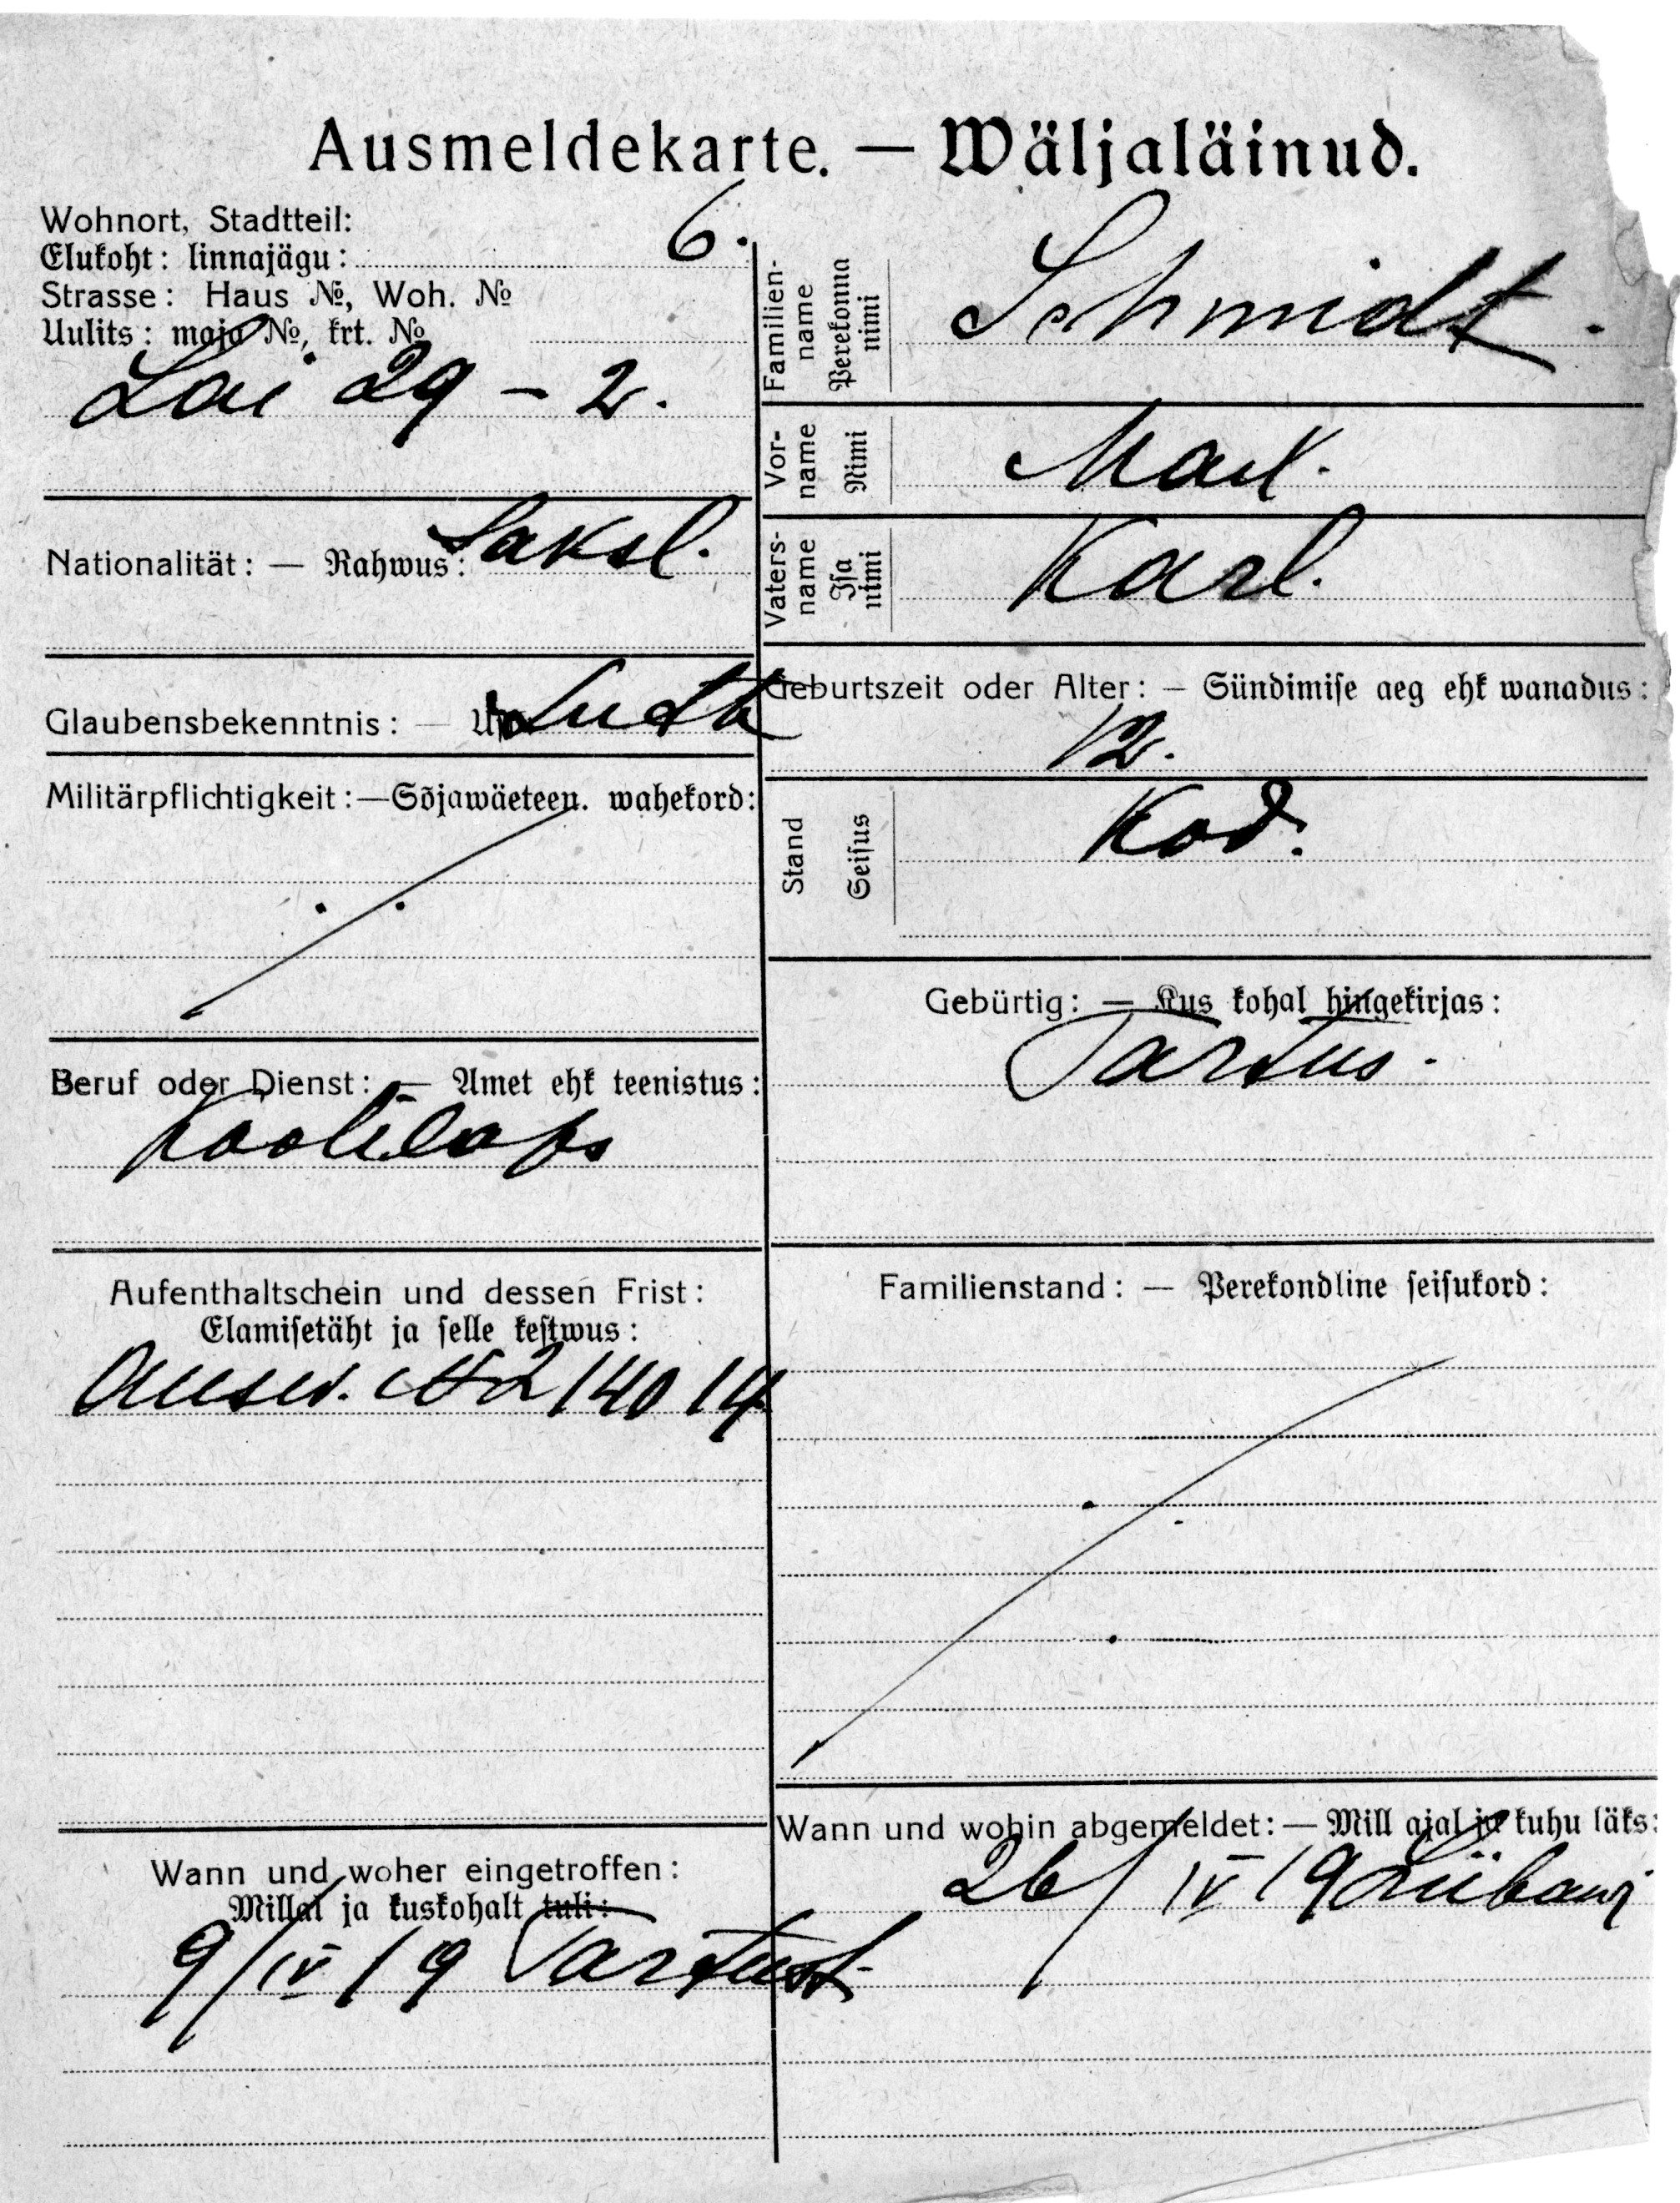 Ausmeldekarte. — Wäljaläinud.
Wohnort, Stadtteil:
Elukoht: linnajägu: 6.
Strasse: Haus №, Woh. №
Uulits: maja №, krt. №
Lai 29 – 2.
Nationalität: — Rahwus: Saksl.
Glaubensbekenntnis: — Luth
Militärpflichtigkeit: — Sõjawäeteen. wahekord:
Beruf oder Dienst: — Amet ehk teenistus:
Koolilaps
Aufenthaltschein und dessen Frist:
Elamisetäht ja selle kestwus:
Ausw. № 2140 14
Wann und woher eingetroffen:
Millal ja kuskohalt tuli:
9/IV 19 Tartust.
Familien-
name
Perekonna
nimi
Schmidt.
Vor-
name
Nimi
Max.
Vaters-
name
Isa
nimi
Karl.
Geburtszeit oder Alter: — Sündimise aeg ehk wanadus:
12.
Stand
Seisus
Kod.
Gebürtig: — Kus kohal hingekirjas:
Tartus.
Familienstand: — Perekondline seisukord:
Wann und wohin abgemeldet: — Mill ajal ja kuhu läks:
26/IV 19 Liibawi